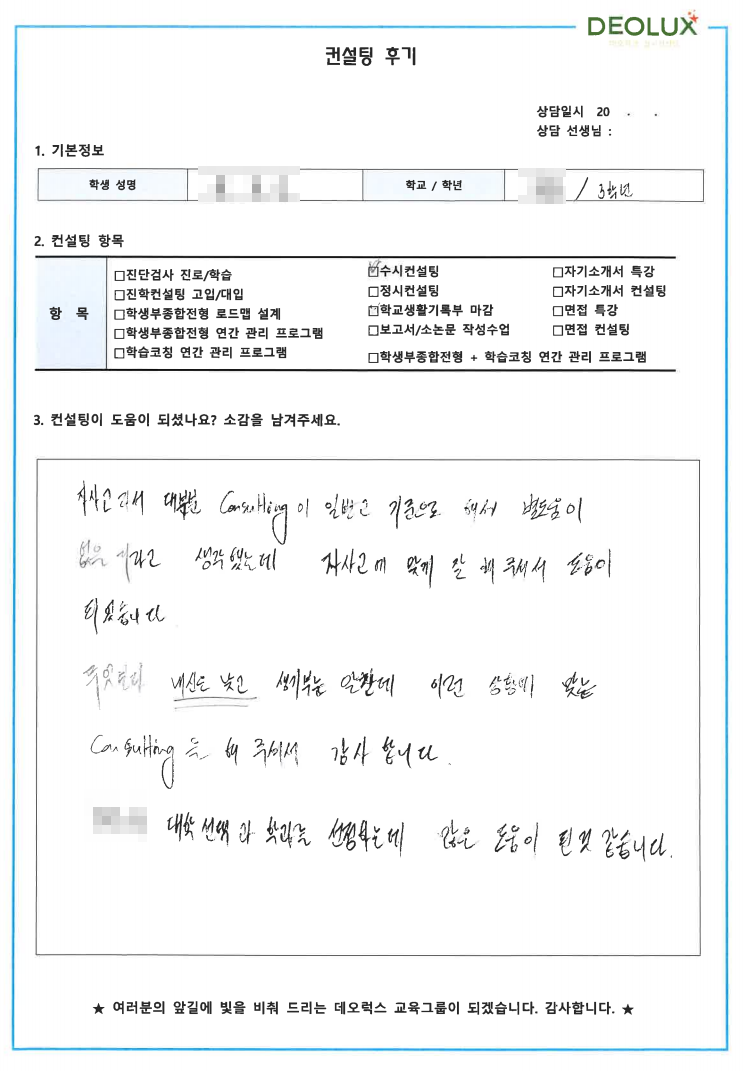 DEOLUX
컨설팅 후기
상담일시 20 . .
상담 선생님 :
1. 기본정보
학생 성명 학교 / 학년 / 3학년
2. 컨설팅 항목
항 목
□진단검사 진로/학습
□진학컨설팅 고입/대입
□학생부종합전형 로드맵 설계
□학생부종합전형 연간 관리 프로그램
□학습코칭 연간 관리 프로그램
☑수시컨설팅
□정시컨설팅
□학교생활기록부 마감
□보고서/소논문 작성수업
□학생부종합전형 + 학습코칭 연간 관리 프로그램
□자기소개서 특강
□자기소개서 컨설팅
□면접 특강
□면접 컨설팅
3. 컨설팅이 도움이 되셨나요? 소감을 남겨주세요.
자사고라서 대부분 Consulting이 일반고 기준으로 해서 별도움이
없을 거라고 생각했는데 자사고에 맞게 잘 해 주셔서 도움이
되었습니다
무엇보다 내신은 낮고 생기부는 알찬데 이런 상황에 맞는
Consulting을 해 주셔서 감사 합니다.
대학 선택과 학과를 선정하는데 많은 도움이 된것 같습니다.
★ 여러분의 앞길에 빛을 비춰 드리는 데오럭스 교육그룹이 되겠습니다. 감사합니다. ★